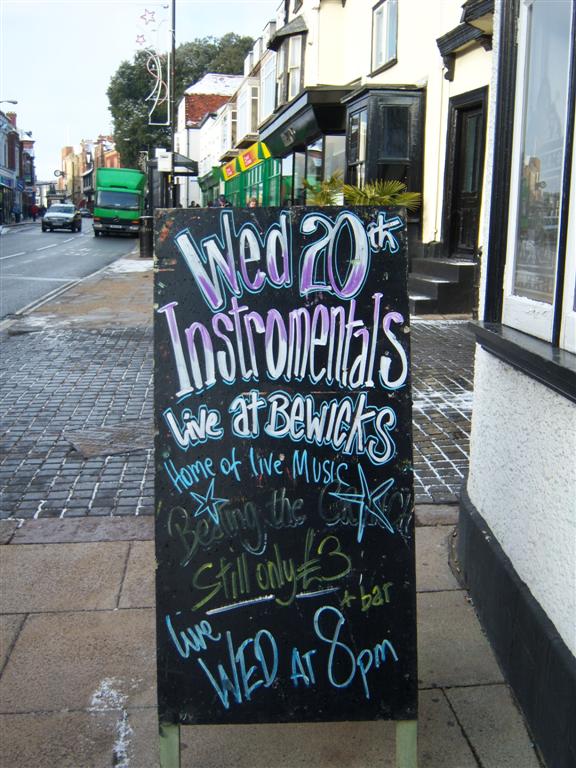 Wed 20th
Instromentals
Live at BEWICKS
Home of live Music
Beating the
Still only £3
+ bar
live
WED AT 8pm